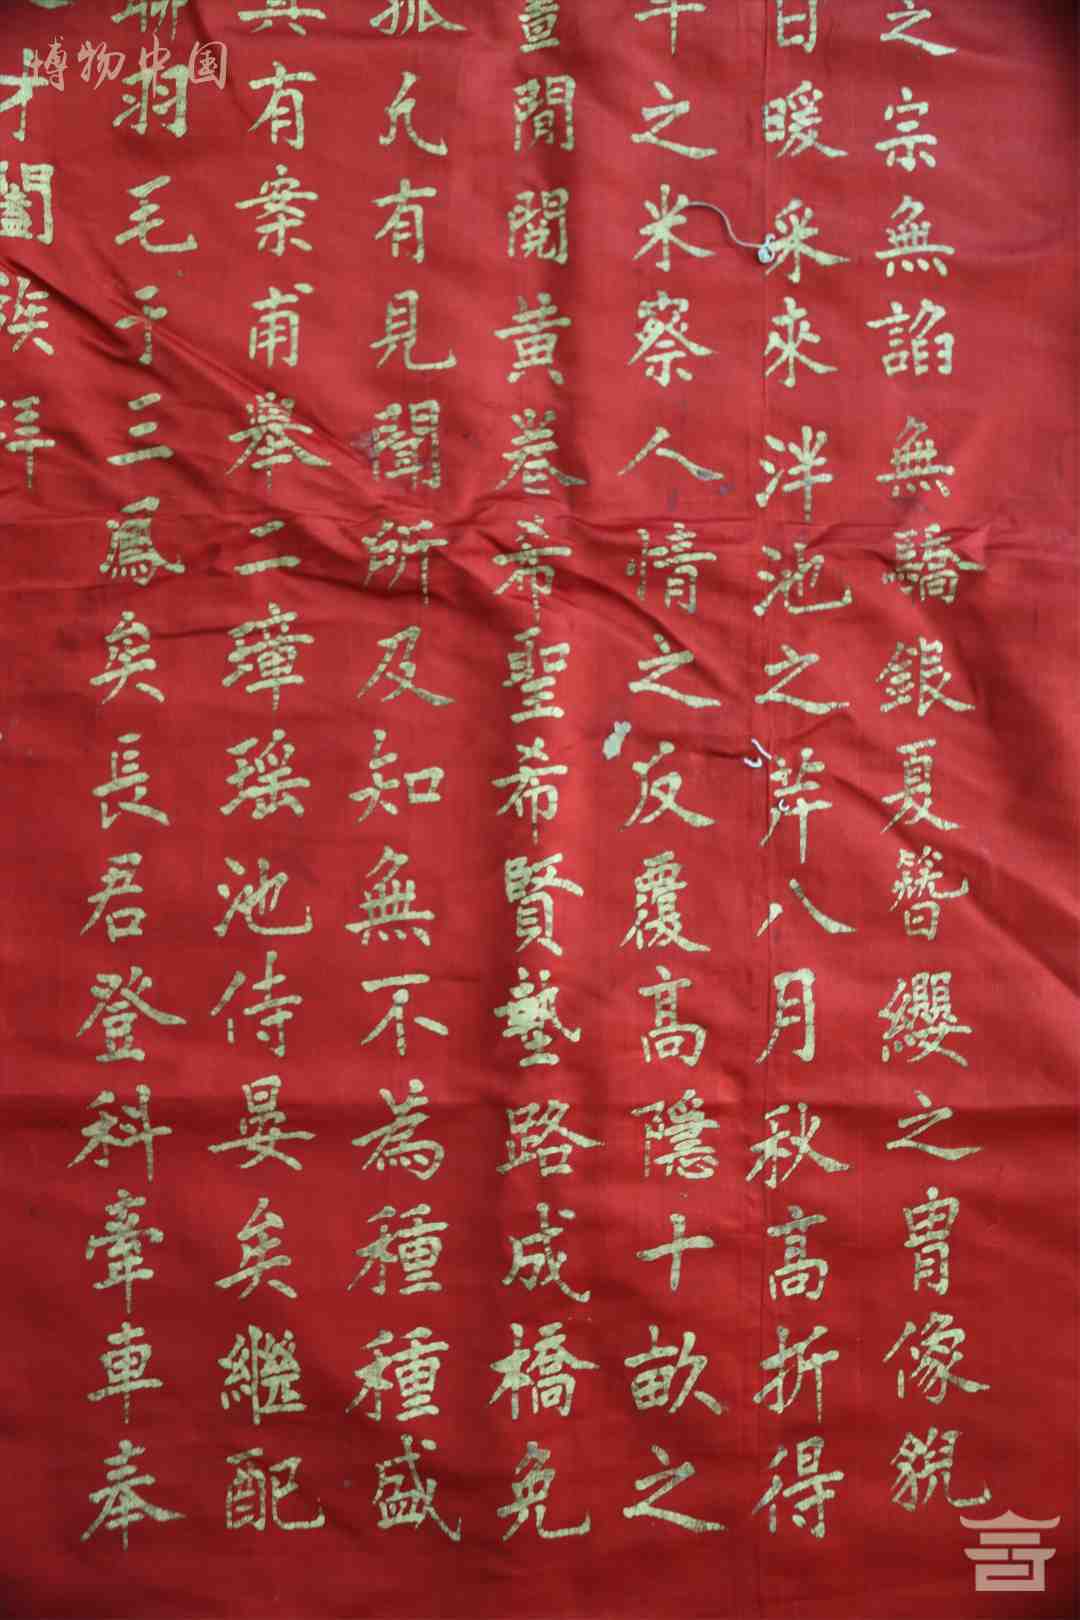 之宗無諂無驕銀夏簪纓之胄像貌
日暖采來泮池之芹八月秋高折得
年之米察人情之反覆高隱十畝之
壹間閱黃卷希聖希賢藝路成橋免
孤凡有見聞所及知無不為種種盛
其有案甫舉二璋瑶池侍晏矣繼配
聊羽毛于三鳳矣長君登科牽車奉
才闔族拜
博物中国